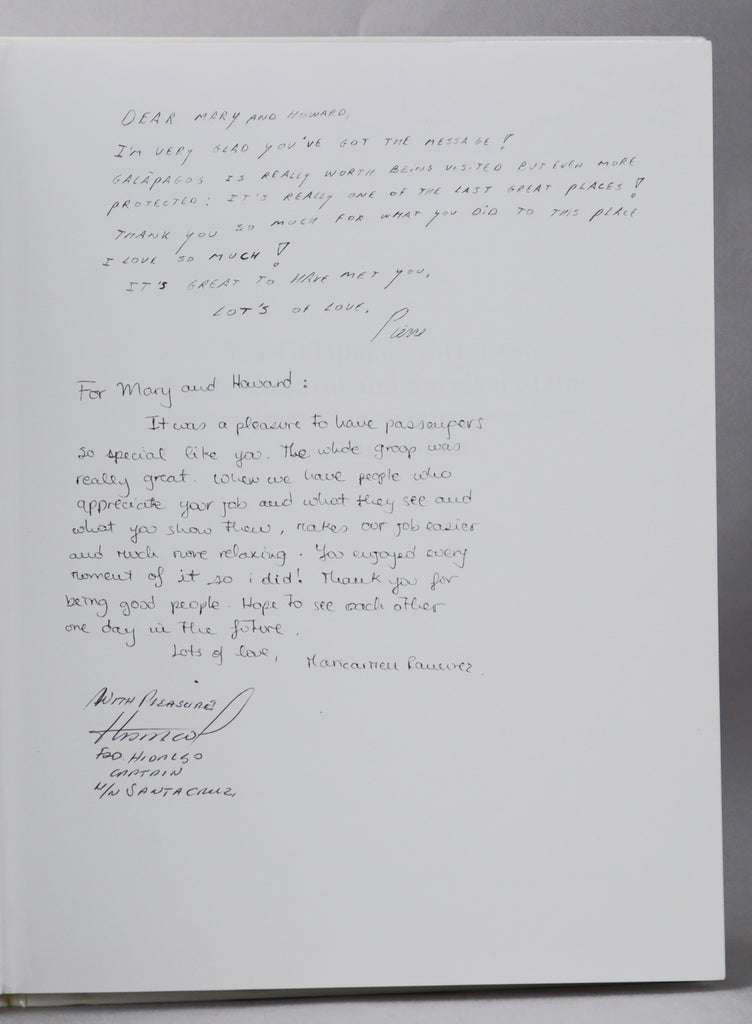 DEAR MARY AND HOWARD,
I'M VERY GLAD YOU'VE GOT THE MESSAGE!
GALÁPAGOS IS REALLY WORTH BEING VISITED BUT EVEN MORE
PROTECTED: IT'S REALLY ONE OF THE LAST GREAT PLACES!
THANK YOU SO MUCH FOR WHAT YOU DID TO THIS PLACE
I LOVE SO MUCH!
IT'S GREAT TO HAVE MET YOU,
LOT'S OF LOVE,
Pierre
For Mary and Howard:
It was a pleasure to have passengers
so special like you. The whole group was
really great. When we have people who
appreciate your job and what they see and
what you show them, makes our job easier
and much more relaxing. You enjoyed every
moment of it so i did! Thank you for
being good people. Hope to see each other
one day in the future.
Lots of love,
Maricarmen Ramirez.
WITH PLEASURE
FDO. HIDALGO
CAPTAIN
M/N SANTA CRUZ.